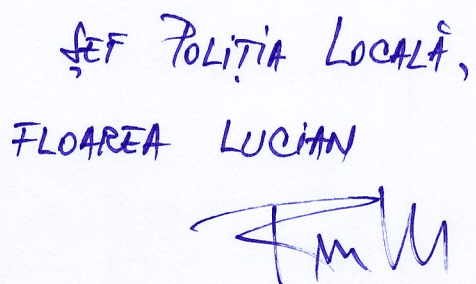 ȘEF POLIȚIA LOCALĂ,
FLOAREA LUCIAN